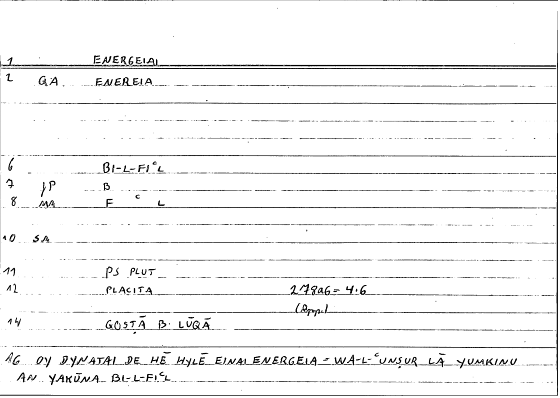 1 ENERGEIAI
2 GA ENEREIA
6 BI-L-FIᶜL
7 JP B
8 MA F ᶜ L
10 SA
11 PS PLUT
12 PLACITA 278a6 = 4.6
14 GOSṬĀ B. LŪQĀ
16 OY DYNATAI DE HĒ HYLĒ EINAI ENERGEIA = WA-L-ᶜUNṢUR LĀ YUMKINU
AN YAKŪNA BI-L-FIᶜL